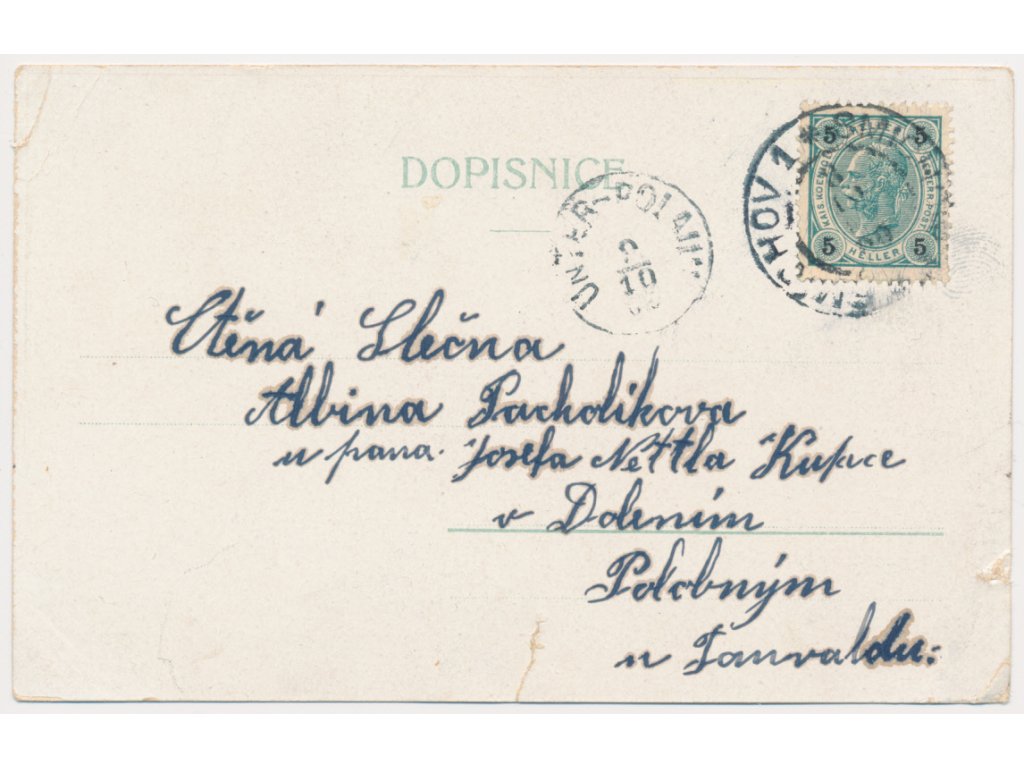 DOPISNICE
UNTER-
10
HOV 1
5 5
KAIS. KOENIGL. OESTERR. POST
5 HELLER 5
Ctěná Slečna
Albina Pacholikova
u pana. Josefa Nettla Kupce
v Dolením
Polobným
u Tanvaldu: